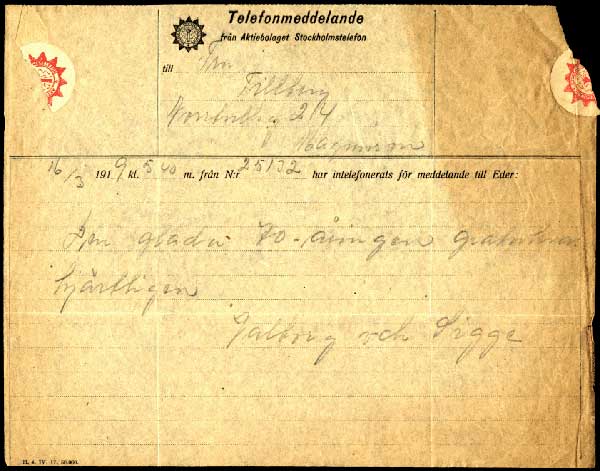 Telefonmeddelande
från Aktiebolaget Stockholmstelefon
till Fru
Tillberg
24
Magnusson
16/3 1919 kl. 5 40 m. från N:r 25132 har intelefonerats för meddelande till Eder:
Den glada 70-åringen gratuleras
hjärtligen
Valborg och Sigge